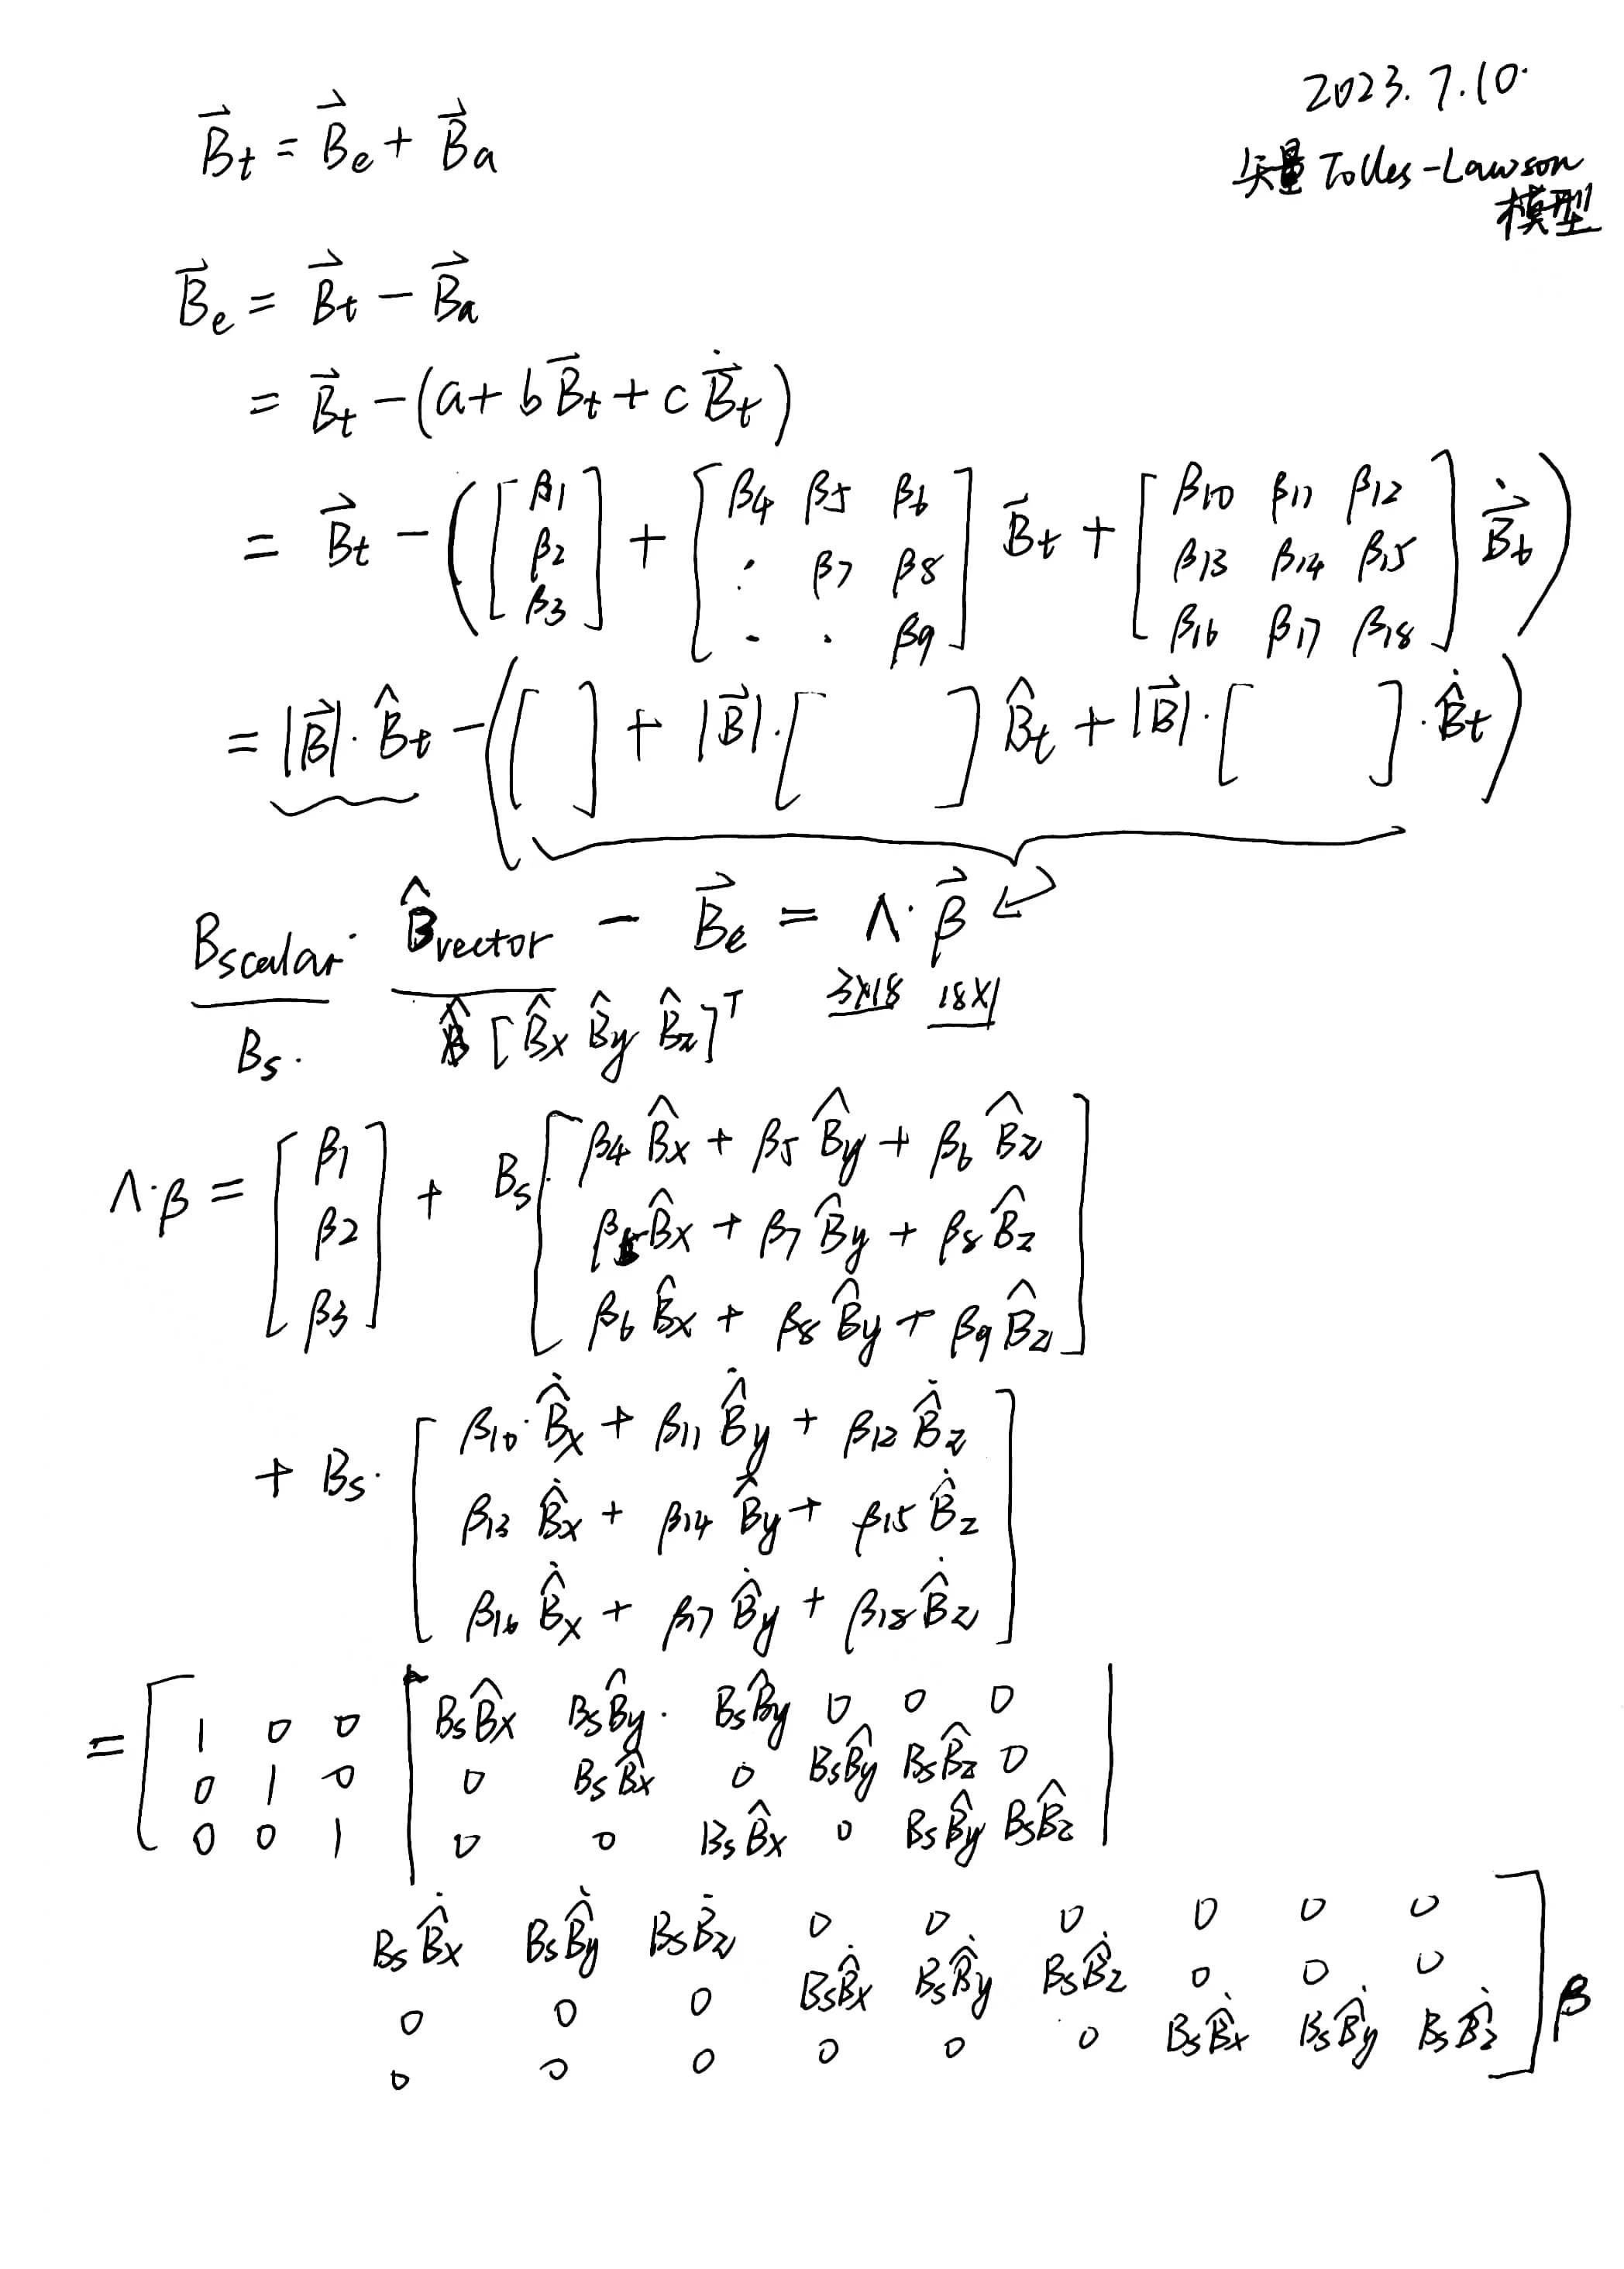 2023.7.10.
矢量Tolles-Lawson
模型
$\vec{B}_t = \vec{B}_e + \vec{B}_a$
$\vec{B}_e = \vec{B}_t - \vec{B}_a$
$= \vec{B}_t - (a + b\vec{B}_t + c\dot{\vec{B}}_t)$
$= \vec{B}_t - \left( \begin{bmatrix} \beta_1 \\ \beta_2 \\ \beta_3 \end{bmatrix} + \begin{bmatrix} \beta_4 & \beta_5 & \beta_6 \\ \cdot & \beta_7 & \beta_8 \\ \cdot & \cdot & \beta_9 \end{bmatrix} \vec{B}_t + \begin{bmatrix} \beta_{10} & \beta_{11} & \beta_{12} \\ \beta_{13} & \beta_{14} & \beta_{15} \\ \beta_{16} & \beta_{17} & \beta_{18} \end{bmatrix} \dot{\vec{B}}_t \right)$
$= |\vec{B}| \cdot \hat{B}_t - \left( [\quad] + |\vec{B}| \cdot [\quad] \hat{B}_t + |\vec{B}| \cdot [\quad] \cdot \dot{\hat{B}}_t \right)$
$B_{scalar} \cdot \hat{B}_{vector} - \vec{B}_e = \Lambda \cdot \vec{\beta}$
3×18 18×1
$B_s.$ $[\hat{B}_x \hat{B}_y \hat{B}_z]^T$
$\Lambda \cdot \beta = \begin{bmatrix} \beta_1 \\ \beta_2 \\ \beta_3 \end{bmatrix} + B_s \begin{bmatrix} \beta_4 \hat{B}_x + \beta_5 \hat{B}_y + \beta_6 \hat{B}_z \\ \beta_5 \hat{B}_x + \beta_7 \hat{B}_y + \beta_8 \hat{B}_z \\ \beta_6 \hat{B}_x + \beta_8 \hat{B}_y + \beta_9 \hat{B}_z \end{bmatrix}$
$+ B_s \cdot \begin{bmatrix} \beta_{10} \cdot \dot{\hat{B}}_x + \beta_{11} \dot{\hat{B}}_y + \beta_{12} \dot{\hat{B}}_z \\ \beta_{13} \dot{\hat{B}}_x + \beta_{14} \dot{\hat{B}}_y + \beta_{15} \dot{\hat{B}}_z \\ \beta_{16} \dot{\hat{B}}_x + \beta_{17} \dot{\hat{B}}_y + \beta_{18} \dot{\hat{B}}_z \end{bmatrix}$
$= \left[ \begin{matrix} 1 & 0 & 0 \\ 0 & 1 & 0 \\ 0 & 0 & 1 \end{matrix} \right| \begin{matrix} B_s\hat{B}_x & B_s\hat{B}_y. & B_s\hat{B}_y & 0 & 0 & 0 \\ 0 & B_s\hat{B}_x & 0 & B_s\hat{B}_y & B_s\hat{B}_z & 0 \\ 0 & 0 & B_s\hat{B}_x & 0 & B_s\hat{B}_y & B_s\hat{B}_z \end{matrix} |$
$\left. \begin{matrix} B_s\dot{\hat{B}}_x & B_s\dot{\hat{B}}_y & B_s\dot{\hat{B}}_z & 0 & 0 & 0 & 0 & 0 & 0 \\ 0 & 0 & 0 & B_s\dot{\hat{B}}_x & B_s\dot{\hat{B}}_y & B_s\dot{\hat{B}}_z & 0 & 0 & 0 \\ 0 & 0 & 0 & 0 & 0 & 0 & B_s\dot{\hat{B}}_x & B_s\dot{\hat{B}}_y & B_s\dot{\hat{B}}_z \end{matrix} \right] \beta$